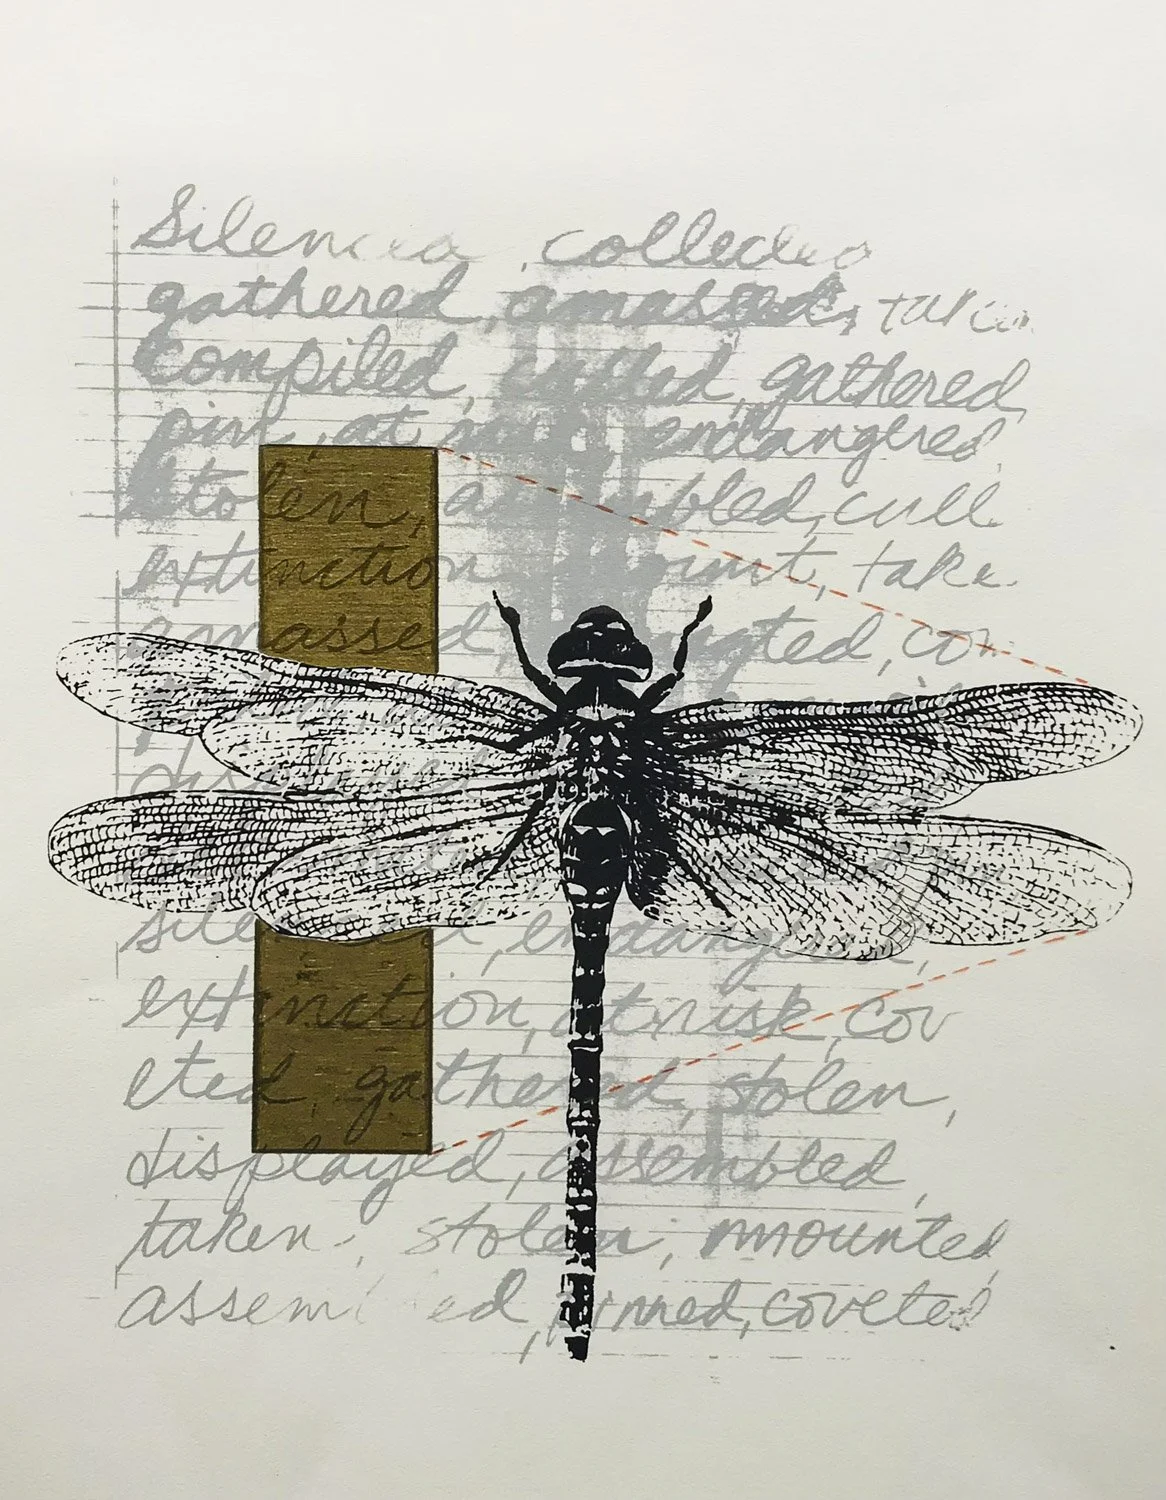 Silenced, collected
gathered, amassed, taken
compiled, culled, gathered,
pin, at risk, endangered,
stolen, assembled, cull
extinction, mount, take
amassed, con
silenced, endangered,
extinction, at risk, cov
eted, gathered, stolen,
displayed, assembled,
taken, stolen, mounted,
assembled, pinned, coveted